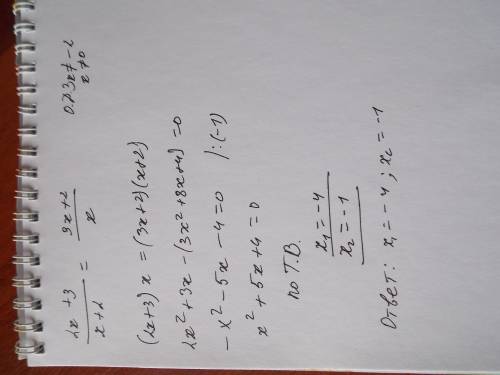 (2x+3)/(x+2) = (3x+2)/x    О.Д.З x≠-2
x≠0
(2x+3)x = (3x+2)(x+2)
2x²+3x-(3x²+8x+4)=0
-x²-5x-4=0 |:(-1)
x²+5x+4=0
по Т.В.
x₁=-4
x₂=-1
Ответ: x₁=-4; x₂=-1